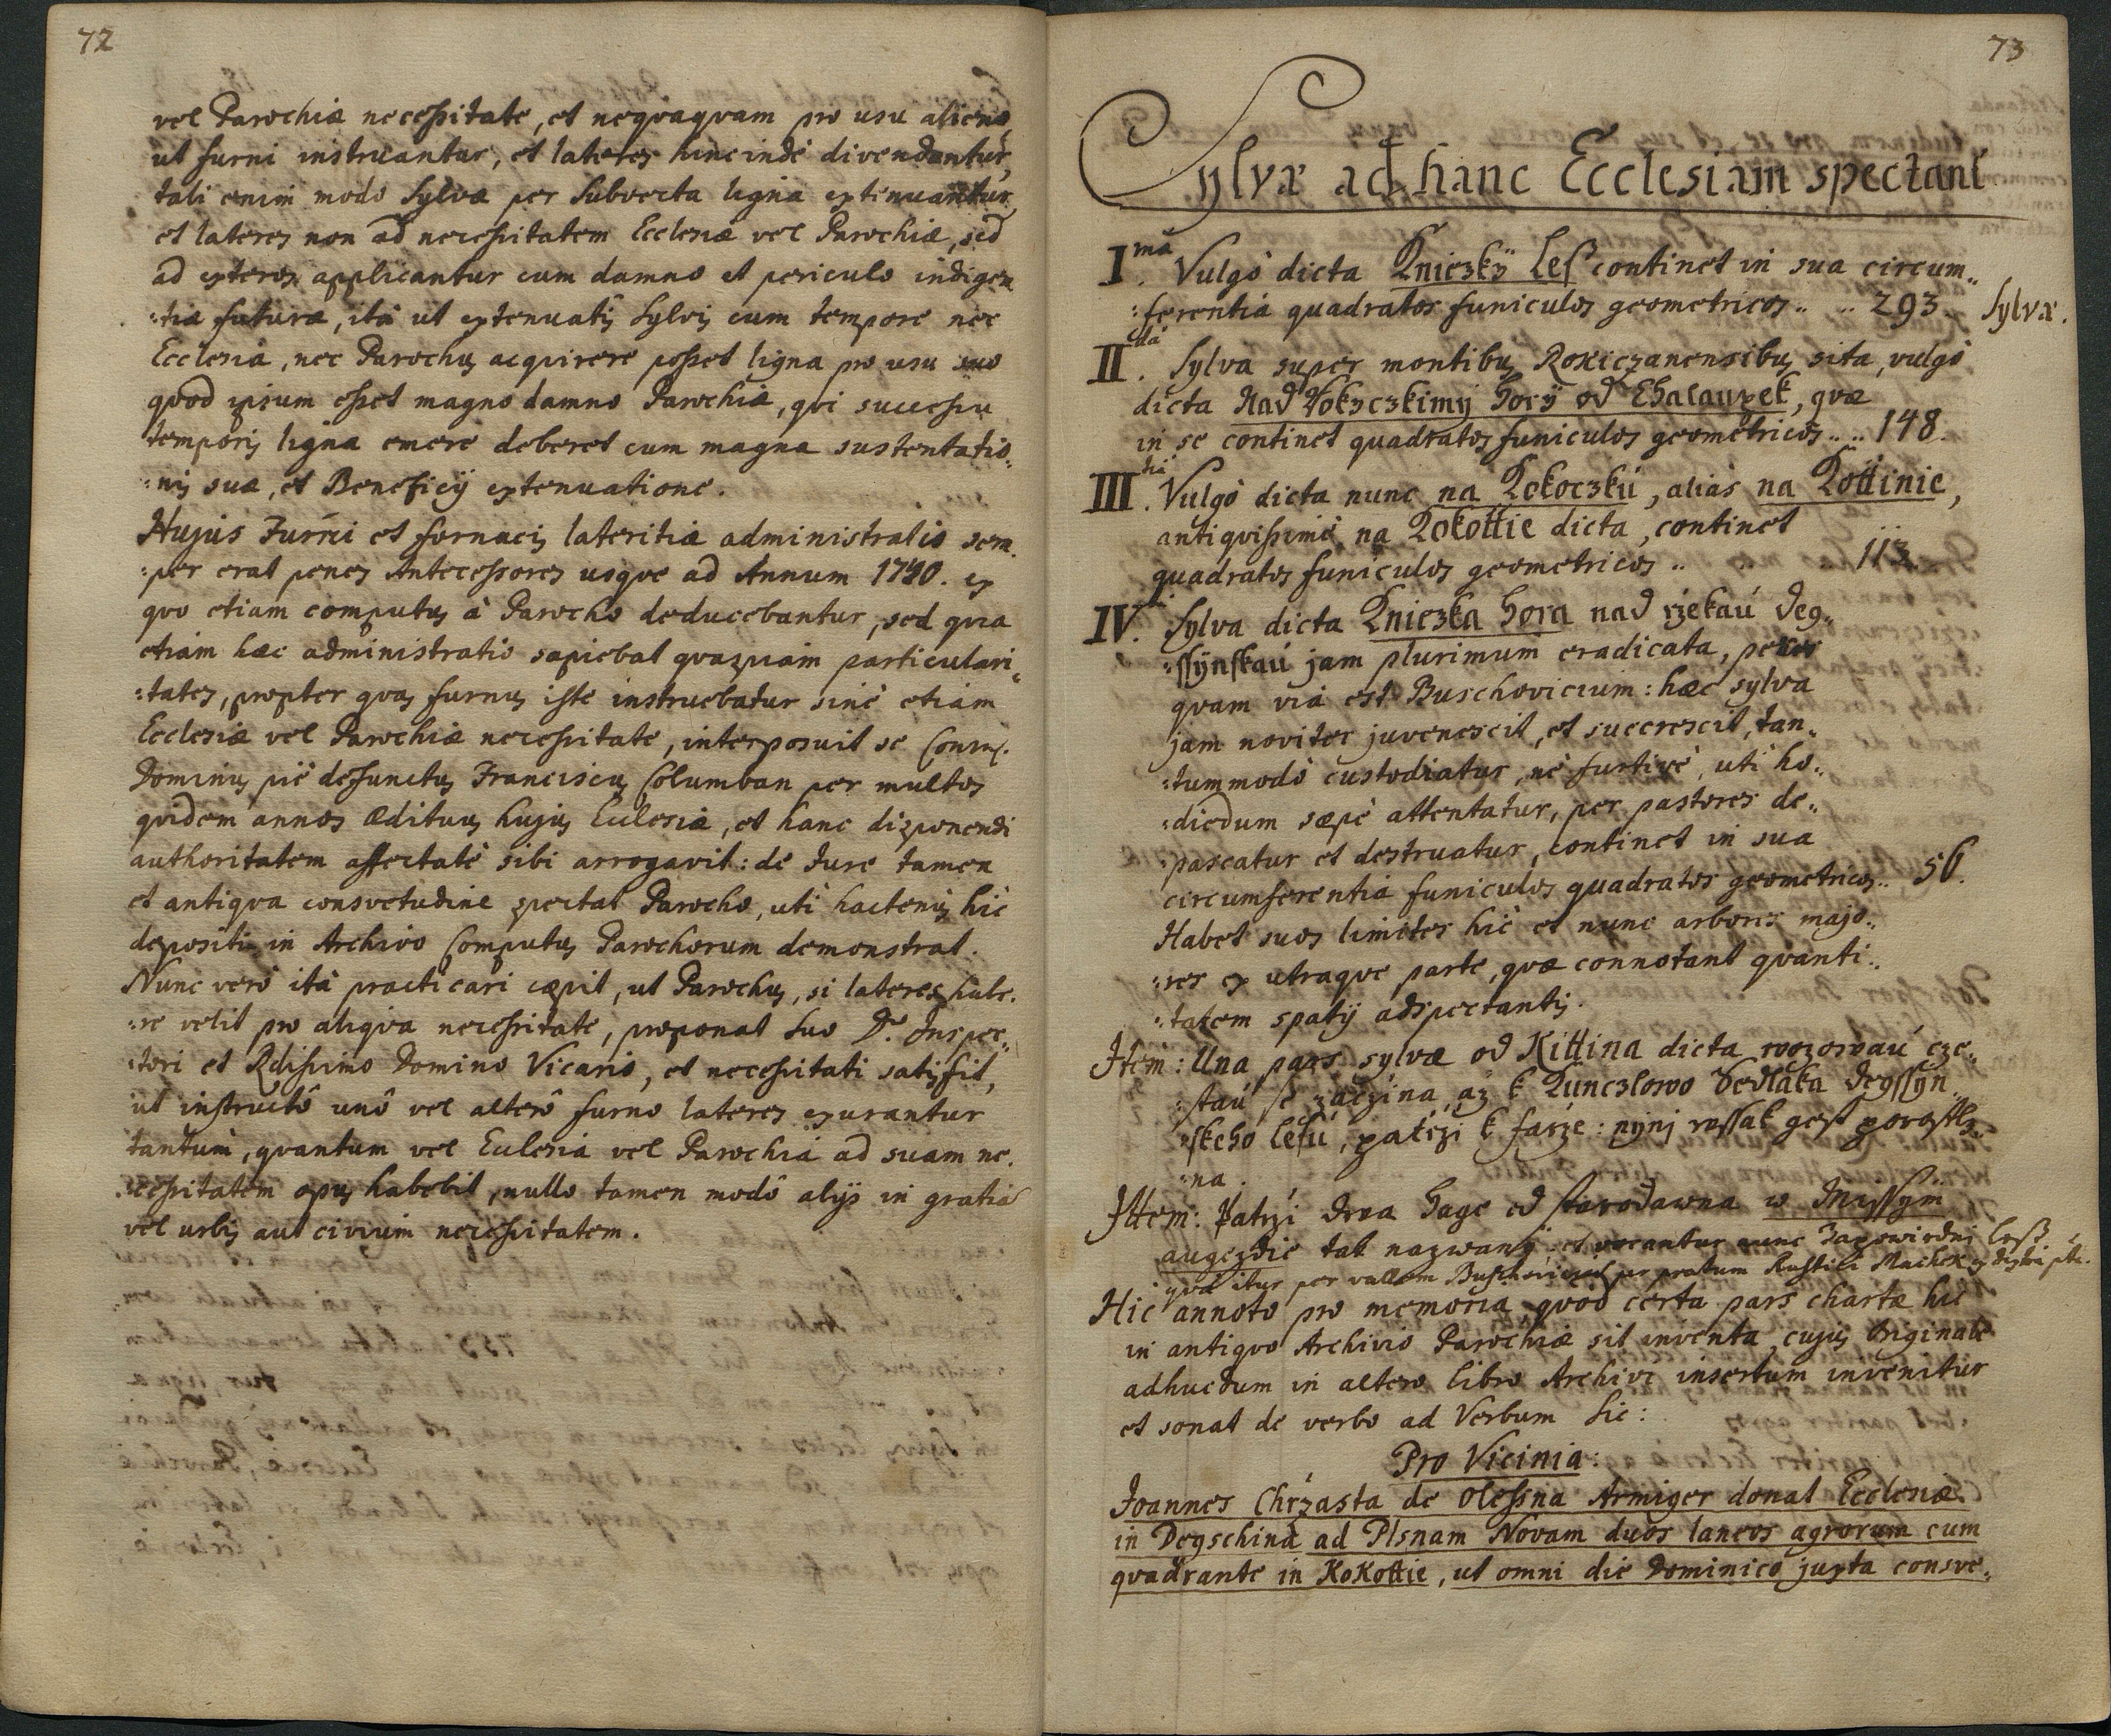 72
vel Parochiæ necessitate, et neqvaqvam pro usu alieno,
ut furni instruantur, et lateres hincindè divendantur,
tali enim modo Sylvæ per Subvecta ligna extenuantur
et lateres non ad necessitatem Ecclesiæ vel Parochiæ, sed
ad exteros applicantur cum damno et periculo indigen
:tiæ futuræ, ità ut extenuatis Sylvis cum tempore nec
Ecclesia, nec Parochus acqvirere posset ligna pro usu suo
qvod ipsum esset magno damno Parochiæ, qvi successu
temporis ligna emere deberet cum magna sustentatio:,
:nis suæ, et Beneficij extenuatione.
Hujus Furni et fornacis lateritiæ administratio sem
:per erat penes Antecessores usqve ad Annum 1740. ex
qvo etiam computus à Parocho deducebantur, sed qvia
etiam hæc administratio sapiebat qvaspiam particulari:,
:tates, propter qvas furnus iste instruebatur sinè etiam
Ecclesiæ vel Parochiæ necessitate, interposuit se
Dominus piè defunctus Franciscus Columban per multos
qvidem annos Ædituus hujus Ecclesiæ, et hanc disponendi
authoritatem affectatè sibi arrogavit: de Jure tamen
et antiqva consvetudine spectat Parocho, uti hactenus hic
depositi in Archivo Computus Parochorum demonstrat.
Nunc verò ità practicari cæpit, ut Parochus, si lateres habe.
:re velit pro aliqva necessitate, proponat suo D. Inspec:,
:tori et Rdissimo Domino Vicario, et necessitati satisfit,
ut instructô unô vel alterô furno lateres exurantur
tantùm, qvantum vel Ecclesia vel Parochia ad suam ne.
:cessitatem opus habebit, nullo tamen modô alijs in gratiã
vel urbis aut civium necessitatem.
73
Sylvæ ad hanc Ecclesiam spectant
Imа. Vulgò dicta Knieżky Les continet in sua circum:,
:ferentiâ quadratos funiculos geometricos .. .. 293.
Sylvæ.
IIda. Sylva super montibus Rokiczanensibus sita, vulgò
dicta Nad Rokyczkimy Hory od Chalaupek, qvæ
in se continet quadratos funiculos geometricos .. .. 148.
IIItia. Vulgò dicta nunc na Kokoczku, alias na Kottinie,
antiqvissimè na Kokottie dicta, continet
quadratos funiculos geometricos .. 113.
IV. Sylva dicta Knieżka Hora nad rzekaú Deg:,
:ssynskaú jam plurimum eradicata, penes
qvam via est Buschovicium: hæc sylva
jam noviter juvenescit, et succrescit, tan:,
:tummodò custodiatur, nè furtivè, uti ho:,
:diedum sæpè attentatur, per pastores de:,
:pascatur et destruatur, continet in sua
circumferentiâ funiculos quadratos geometricos .. 56.
Habet suos limites hic et nunc arbores majo:,
:res ex utraqve parte, qvæ connotant qvanti:,
:tatem spatij adspectantis.
Item: Una pars sylvæ od Kittina dicta wozowaú cze:,
:staú se zaczina, aż k Kunczlowo Sedlaka Degssyn
:skeho lesu, patrzi k farze: nynj wssak gest porostlę
:na.
Ittem: Patrzi drwa Hage od starodawna w Mayssym
augezdie tak nazwany: et vocantur nunc Zapowiedni less
qva itur per vallem Buschovicium per pratum Rustici Machek
Hic annoto pro memoria, qvòd certa pars chartæ hic
in antiqvo Archivio Parochiæ sit inventa, cujus Originale
adhucdum in altero libro Archivi insertum invenitur
et sonat de verbo ad Verbum Sic:
Pro Vicinia:
Joannes Chrzasta de Olessna Armiger donat Ecclesiæ
in Degschina ad Plsnam Novam duos laneos agrorum cum
qvadrante in KoKottie, ut omni die Dominico juxta consve:,